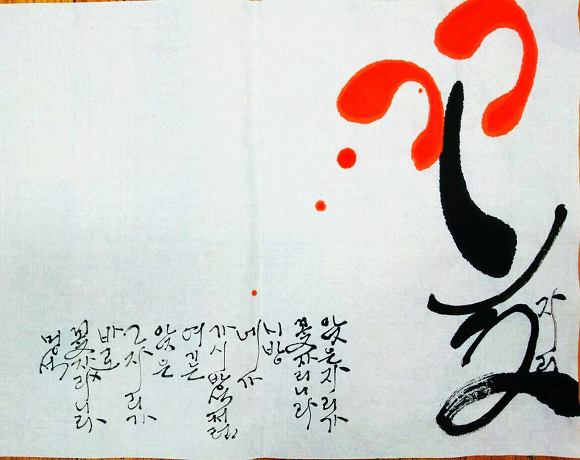 꽃
자리
앉은자리가
꽃자리니라
시방
네가
가시방석처럼
여기는
앉은
그자리가
바로
꽃자리니라